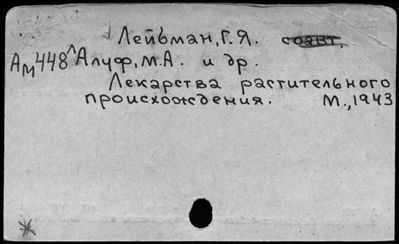 Лейбман, Г.Я. соавт.
Ам448 Алуф, М.А. и др.
Лекарства растительного
происхождения. М., 1943